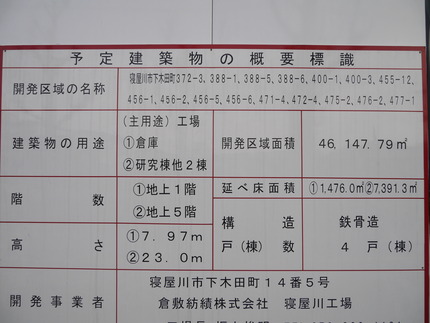 予定建築物の概要標識
開発区域の名称
寝屋川市下木田町372-3、388-1、388-5、388-6、400-1、400-3、455-12、
456-1、456-2、456-5、456-6、471-4、472-4、475-2、476-2、477-1
建築物の用途
(主用途)工場
①倉庫
②研究棟他2棟
開発区域面積
46,147.79㎡
階数
①地上1階
②地上5階
延べ床面積
①1,476.0㎡②7,391.3㎡
高さ
①7.97m
②23.0m
構造
戸(棟)数
鉄骨造
4 戸(棟)
開発事業者
寝屋川市下木田町14番5号
倉敷紡績株式会社 寝屋川工場